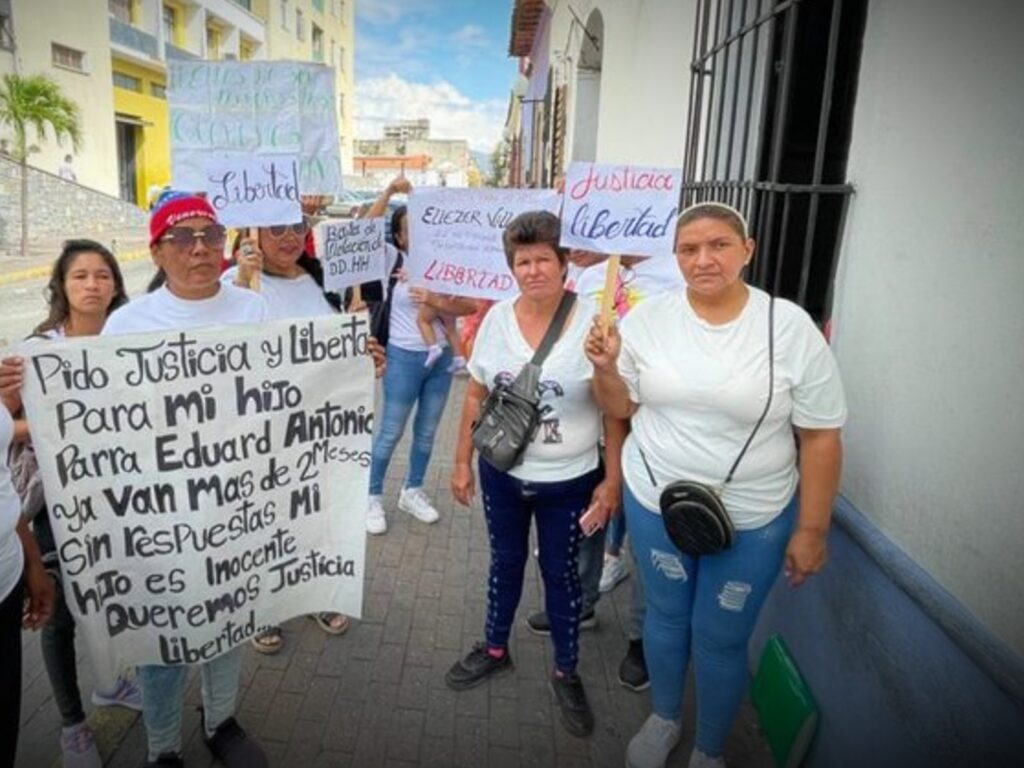 Libertad
Basta de
Violación de
DD.HH
ELIEZER
LIBERTAD
Justicia
Libertad
Pido Justicia y Liberta
Para mi hijo
Parra Eduard Antonio
ya van mas de 2 Meses
sin respuestas Mi
hijo es Inocente
Queremos Justicia
Libertad...